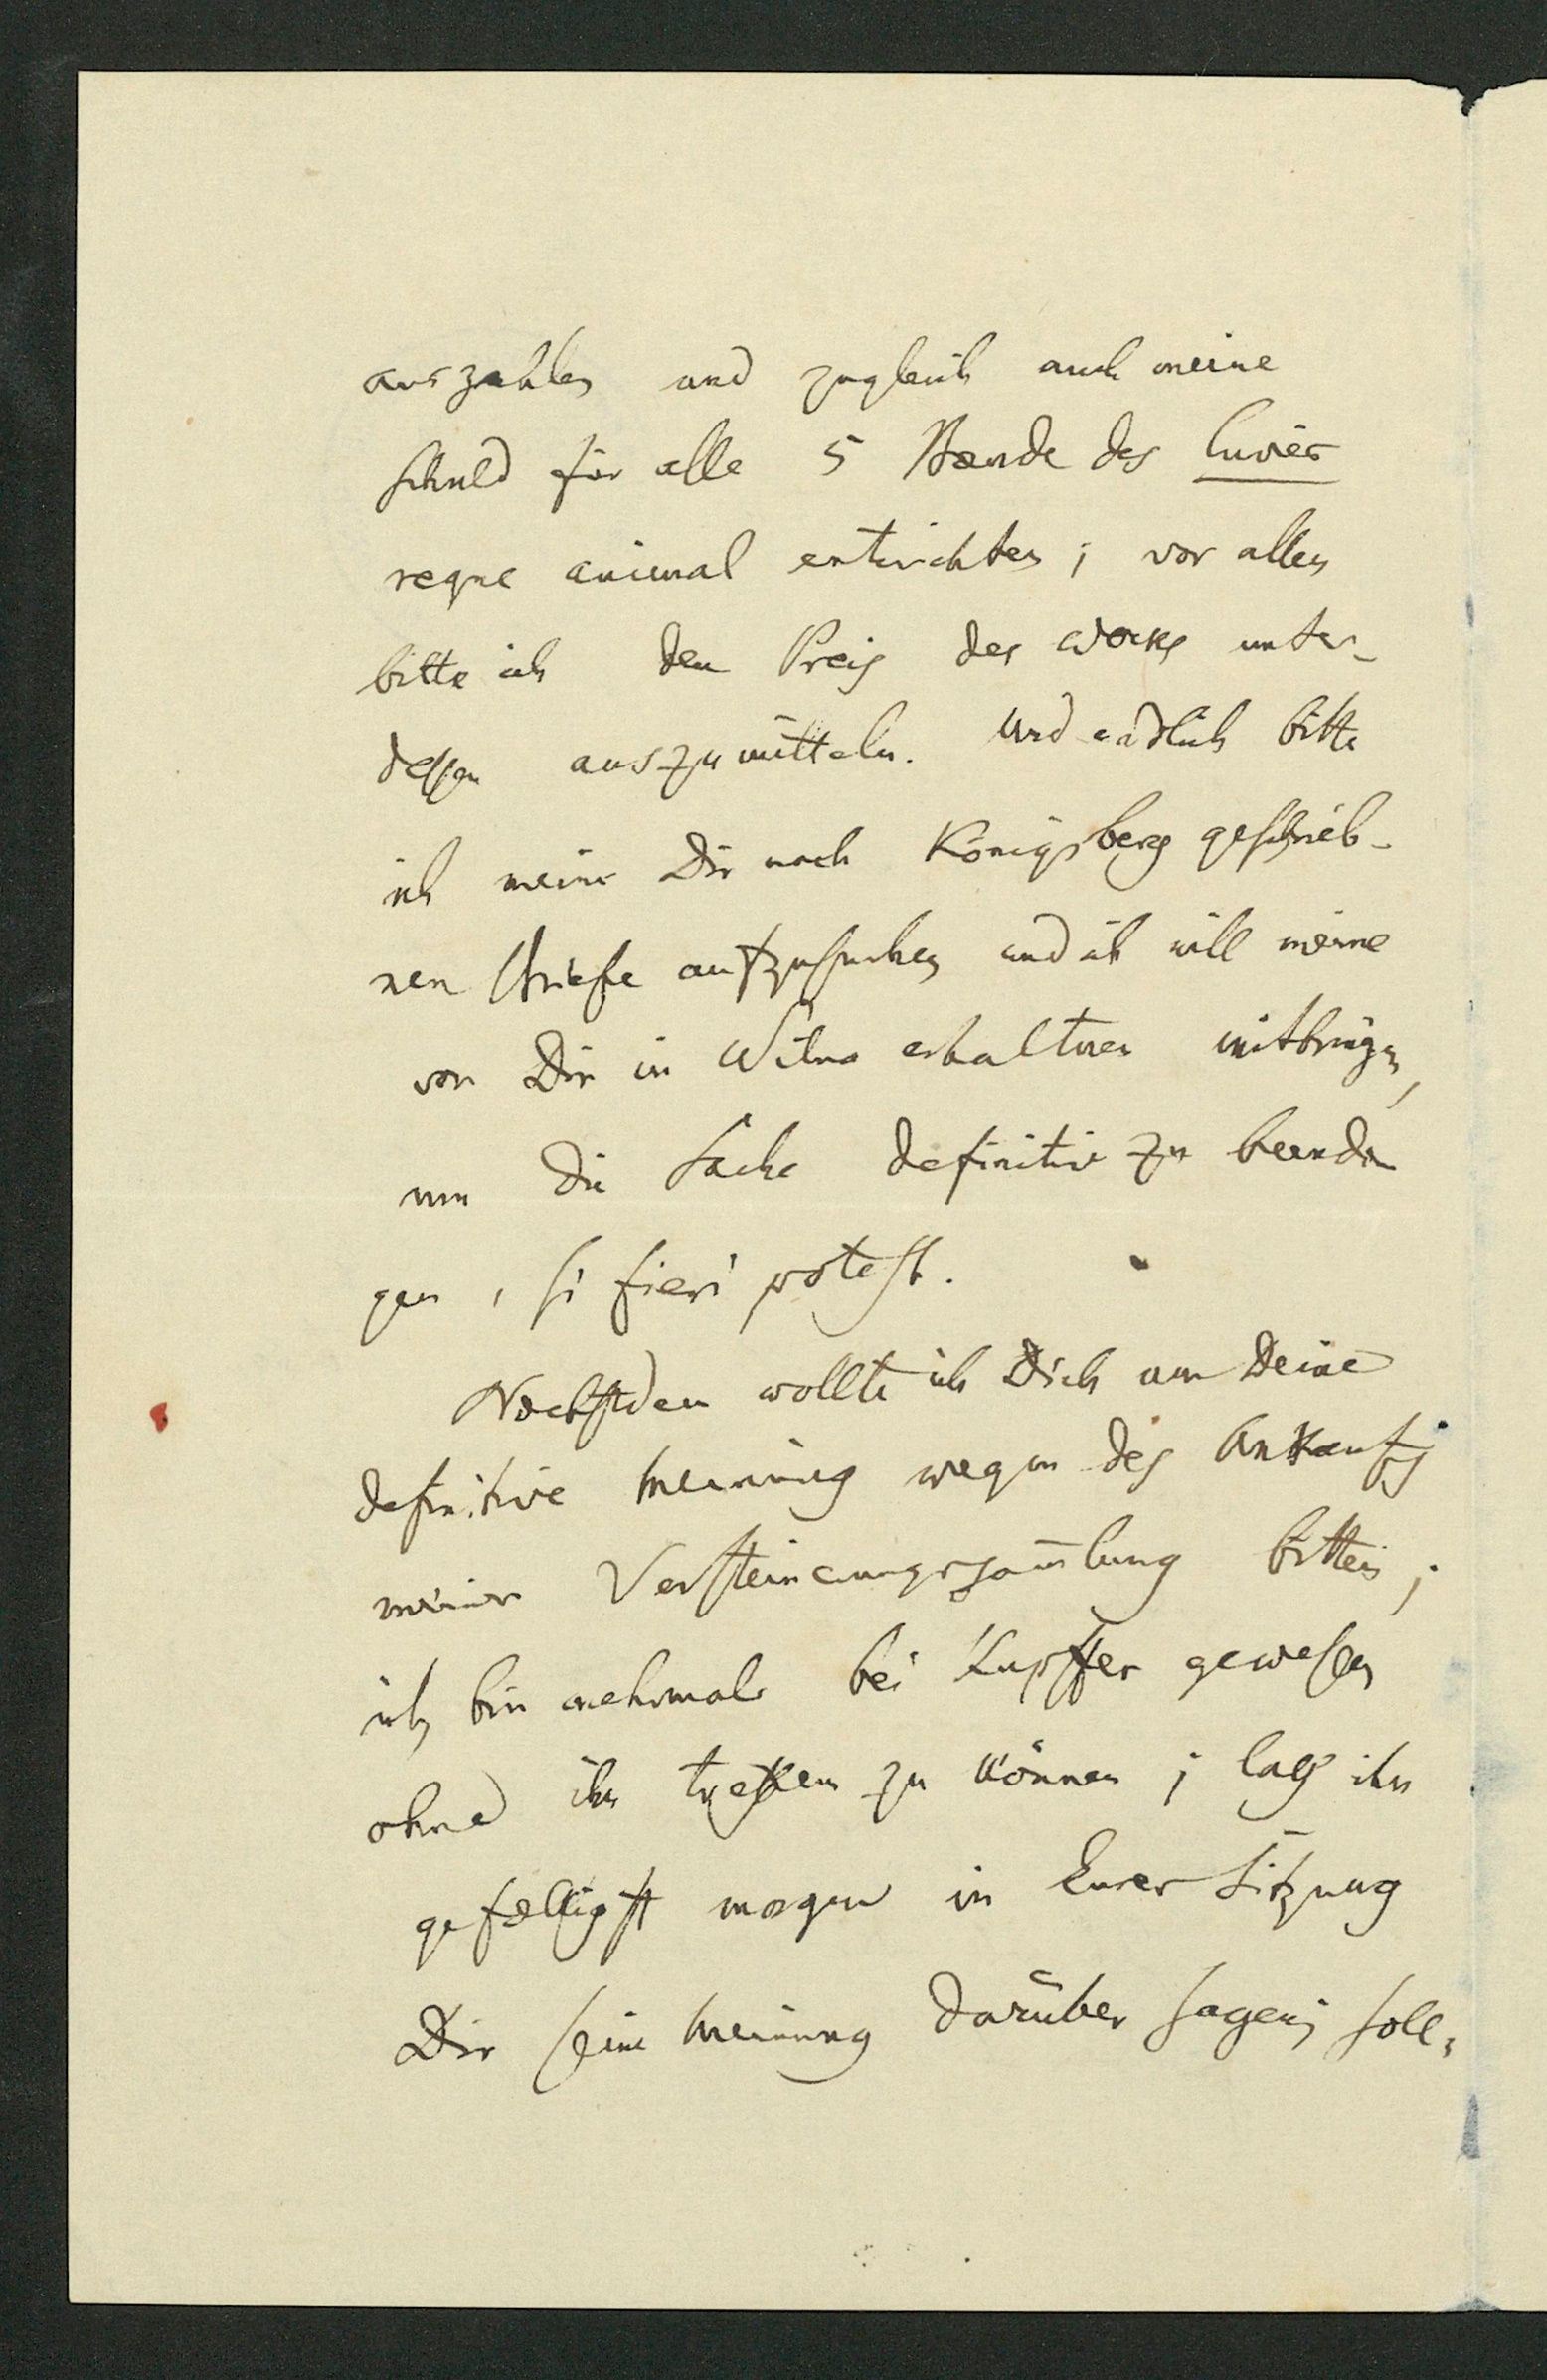 auszahlen und zugleich auch meine
Schuld für alle 5 Bænde des Cuvier
regne animal entrichten; vor allen
bitte ich den Preis des Werks unter-
dessen auszumitteln. Und endlich bitte
ich meine Dir nach Königsberg geschrieb-
nen Briefe aufzusuchen und ich will meine
von Dir in Wilna erhaltnen mitbringen,
um die Sache definitiv zu beendi
gen, si fieri potest.
Næchstdem wollte ich Dich um Deine
definitive Meinung wegen des Ankaufs
meiner Versteinerungssam̄lung bitten;
ich bin mehrmals bei Kupffer gewesen
ohne ihn treffen zu können; lass ihn
gefælligst morgen in Eurer Sitzung
Dir seine Meinung darüber sagen; soll-